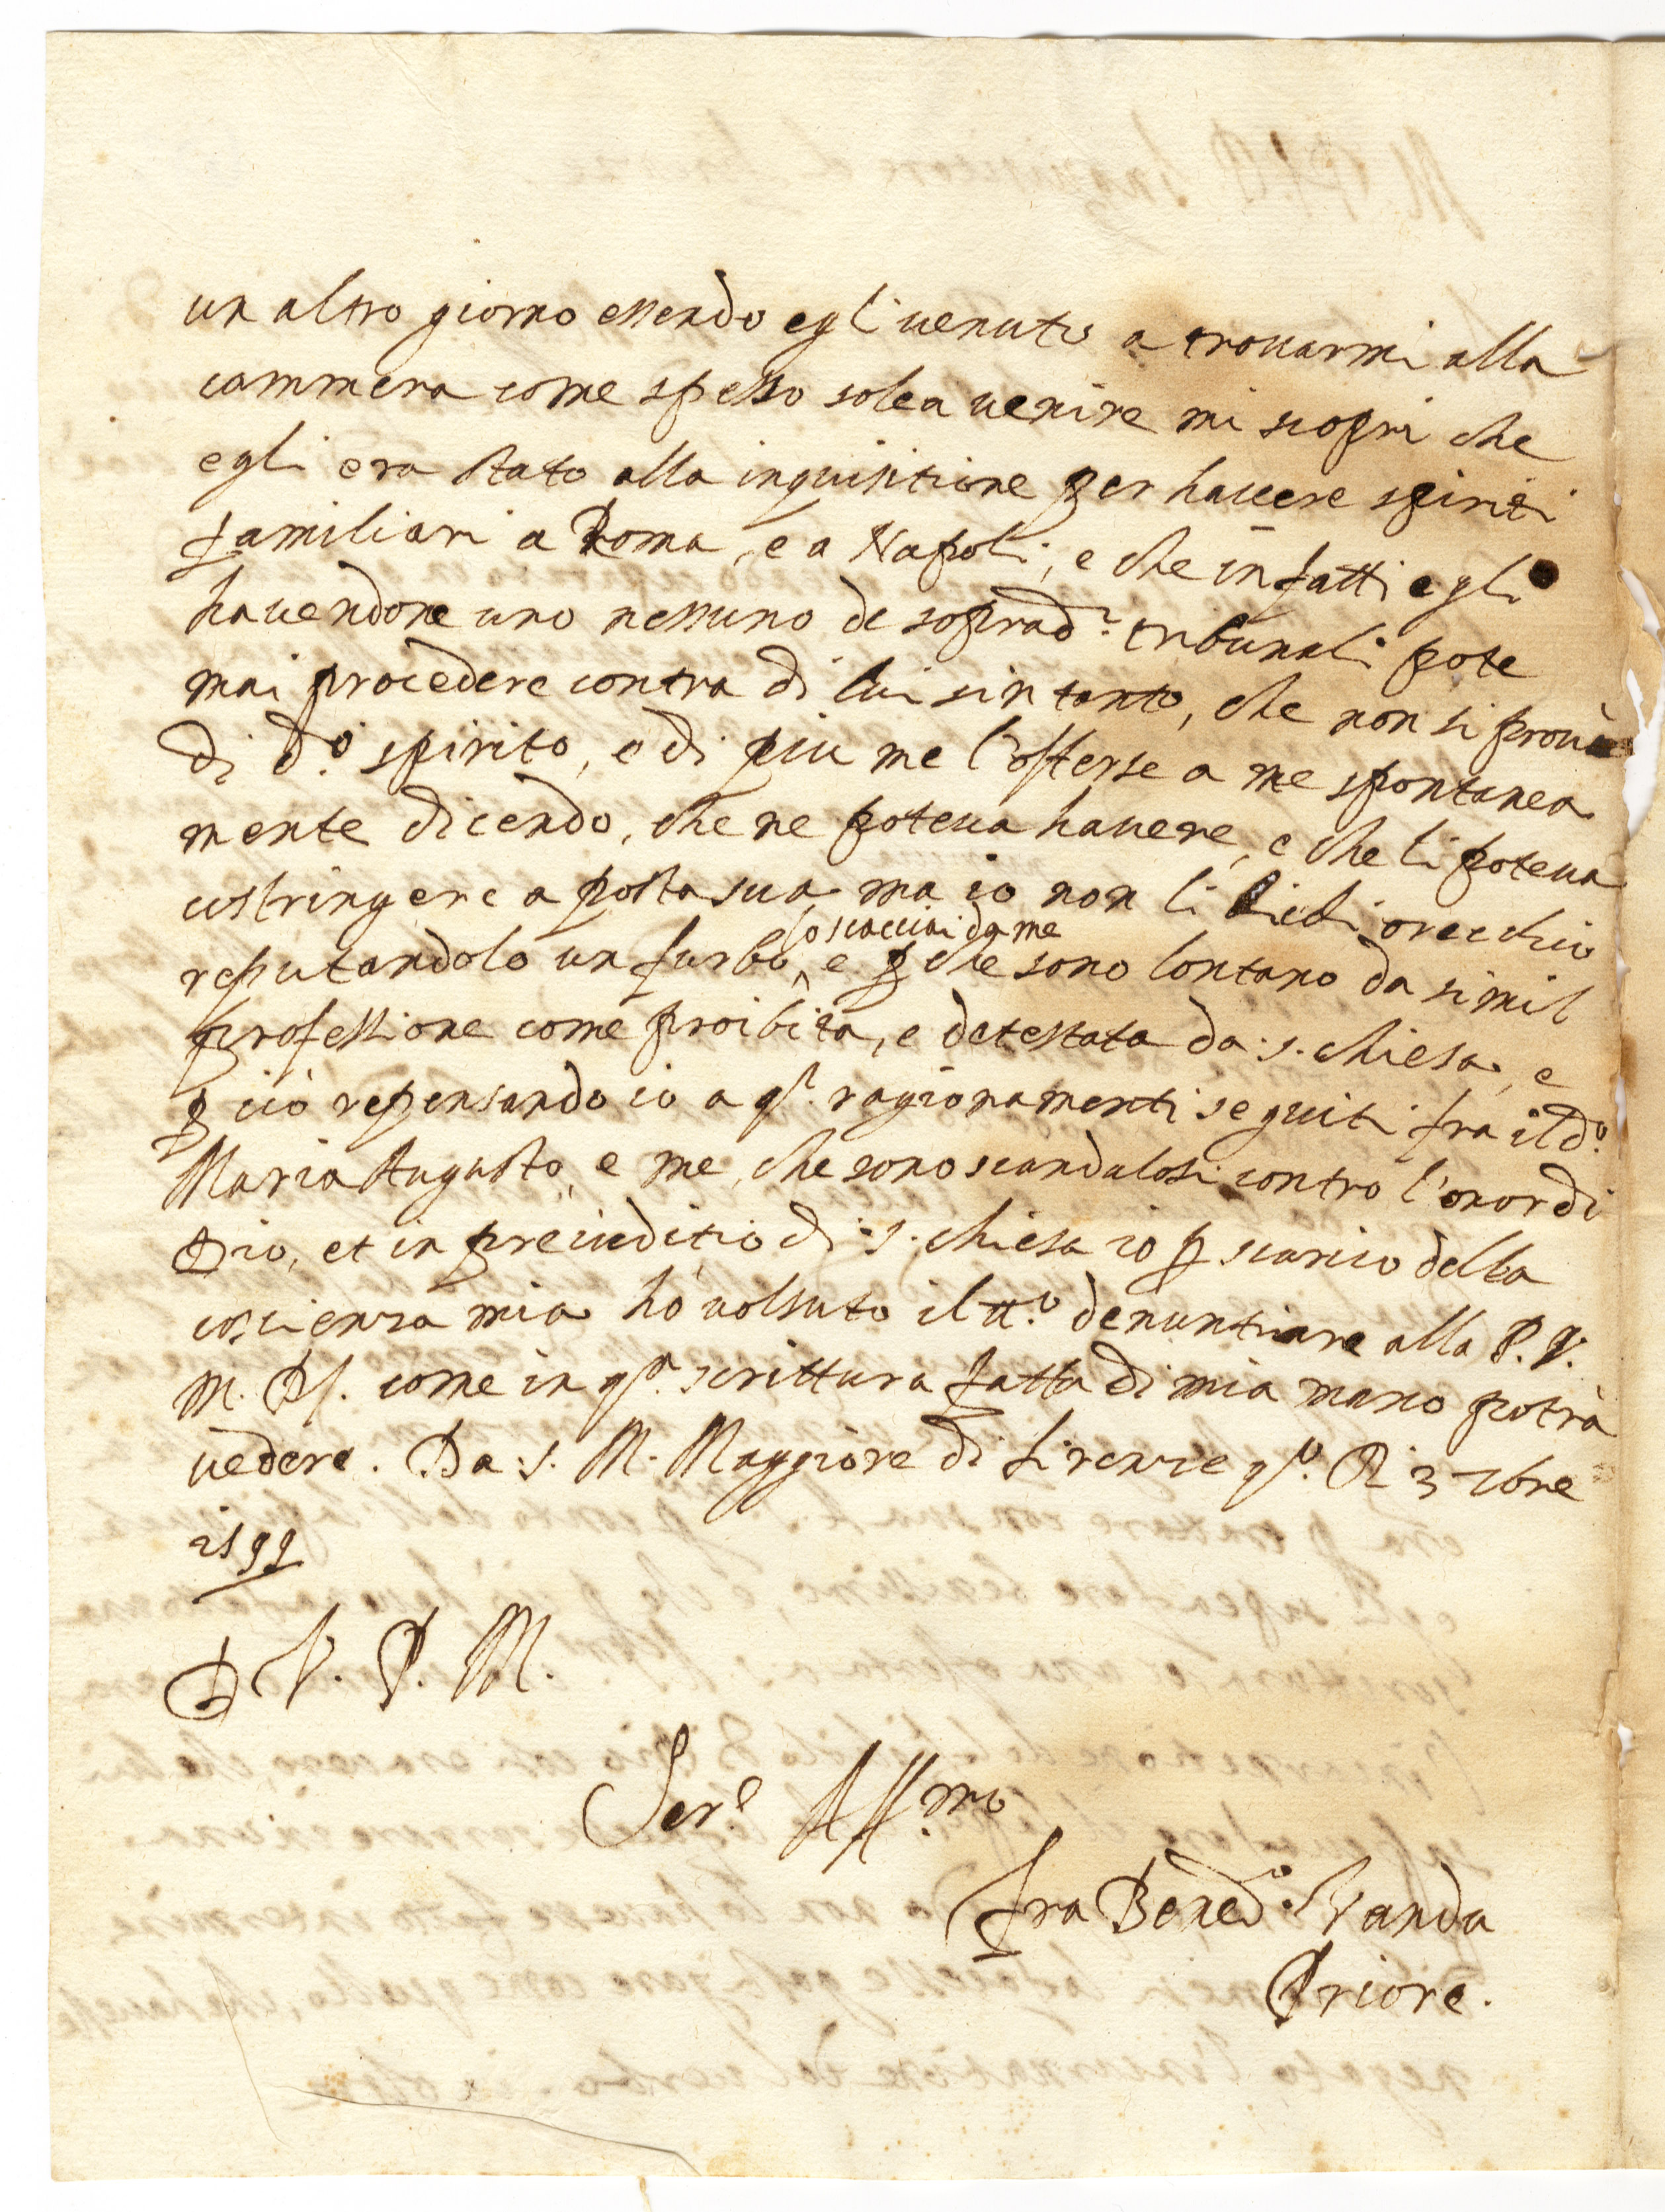 un altro giorno essendo egli uenuto a trouarmi alla
cammera come spesso solea uenire mi scoprì che
egli era stato alla inquisitione per hauere spiriti
familiari a Roma, e a Napoli, e che in fatti egli
hauendone uno nessuno de soprad.ⁱ tribunali pote
mai procedere contra di lui sin tanto, che non si prouò
di d.º spirito, e di piu me l'offerse a me spontanea
mente dicendo, che ne poteua hauere, e che li poteua
costringere a posta sua ma io non li diedi orecchio
reputandolo un furbo, lo scacciai da me e p che sono lontano da simil
professione come proibita, e detestata da s. chiesa, e
p ciò repensando io a q.ⁱ ragionamenti seguiti fra il d.º
Maria Augusto, e me, che sono scandalosi contro l'onor di
Dio, et in preiuditio di s. chiesa io p scarico della
coscienza mia hò uolsuto il tt.º denuntiare alla P. V.
M. R. come in q.ª scrittura fatta di mia mano potrà
uedere. Da s. M. Maggiore di Firenze q.º Di 3 7bre
1599
D V. P. M.
Ser.ᵉ Aff.mo
fra Bened.º Vanda
Priore.